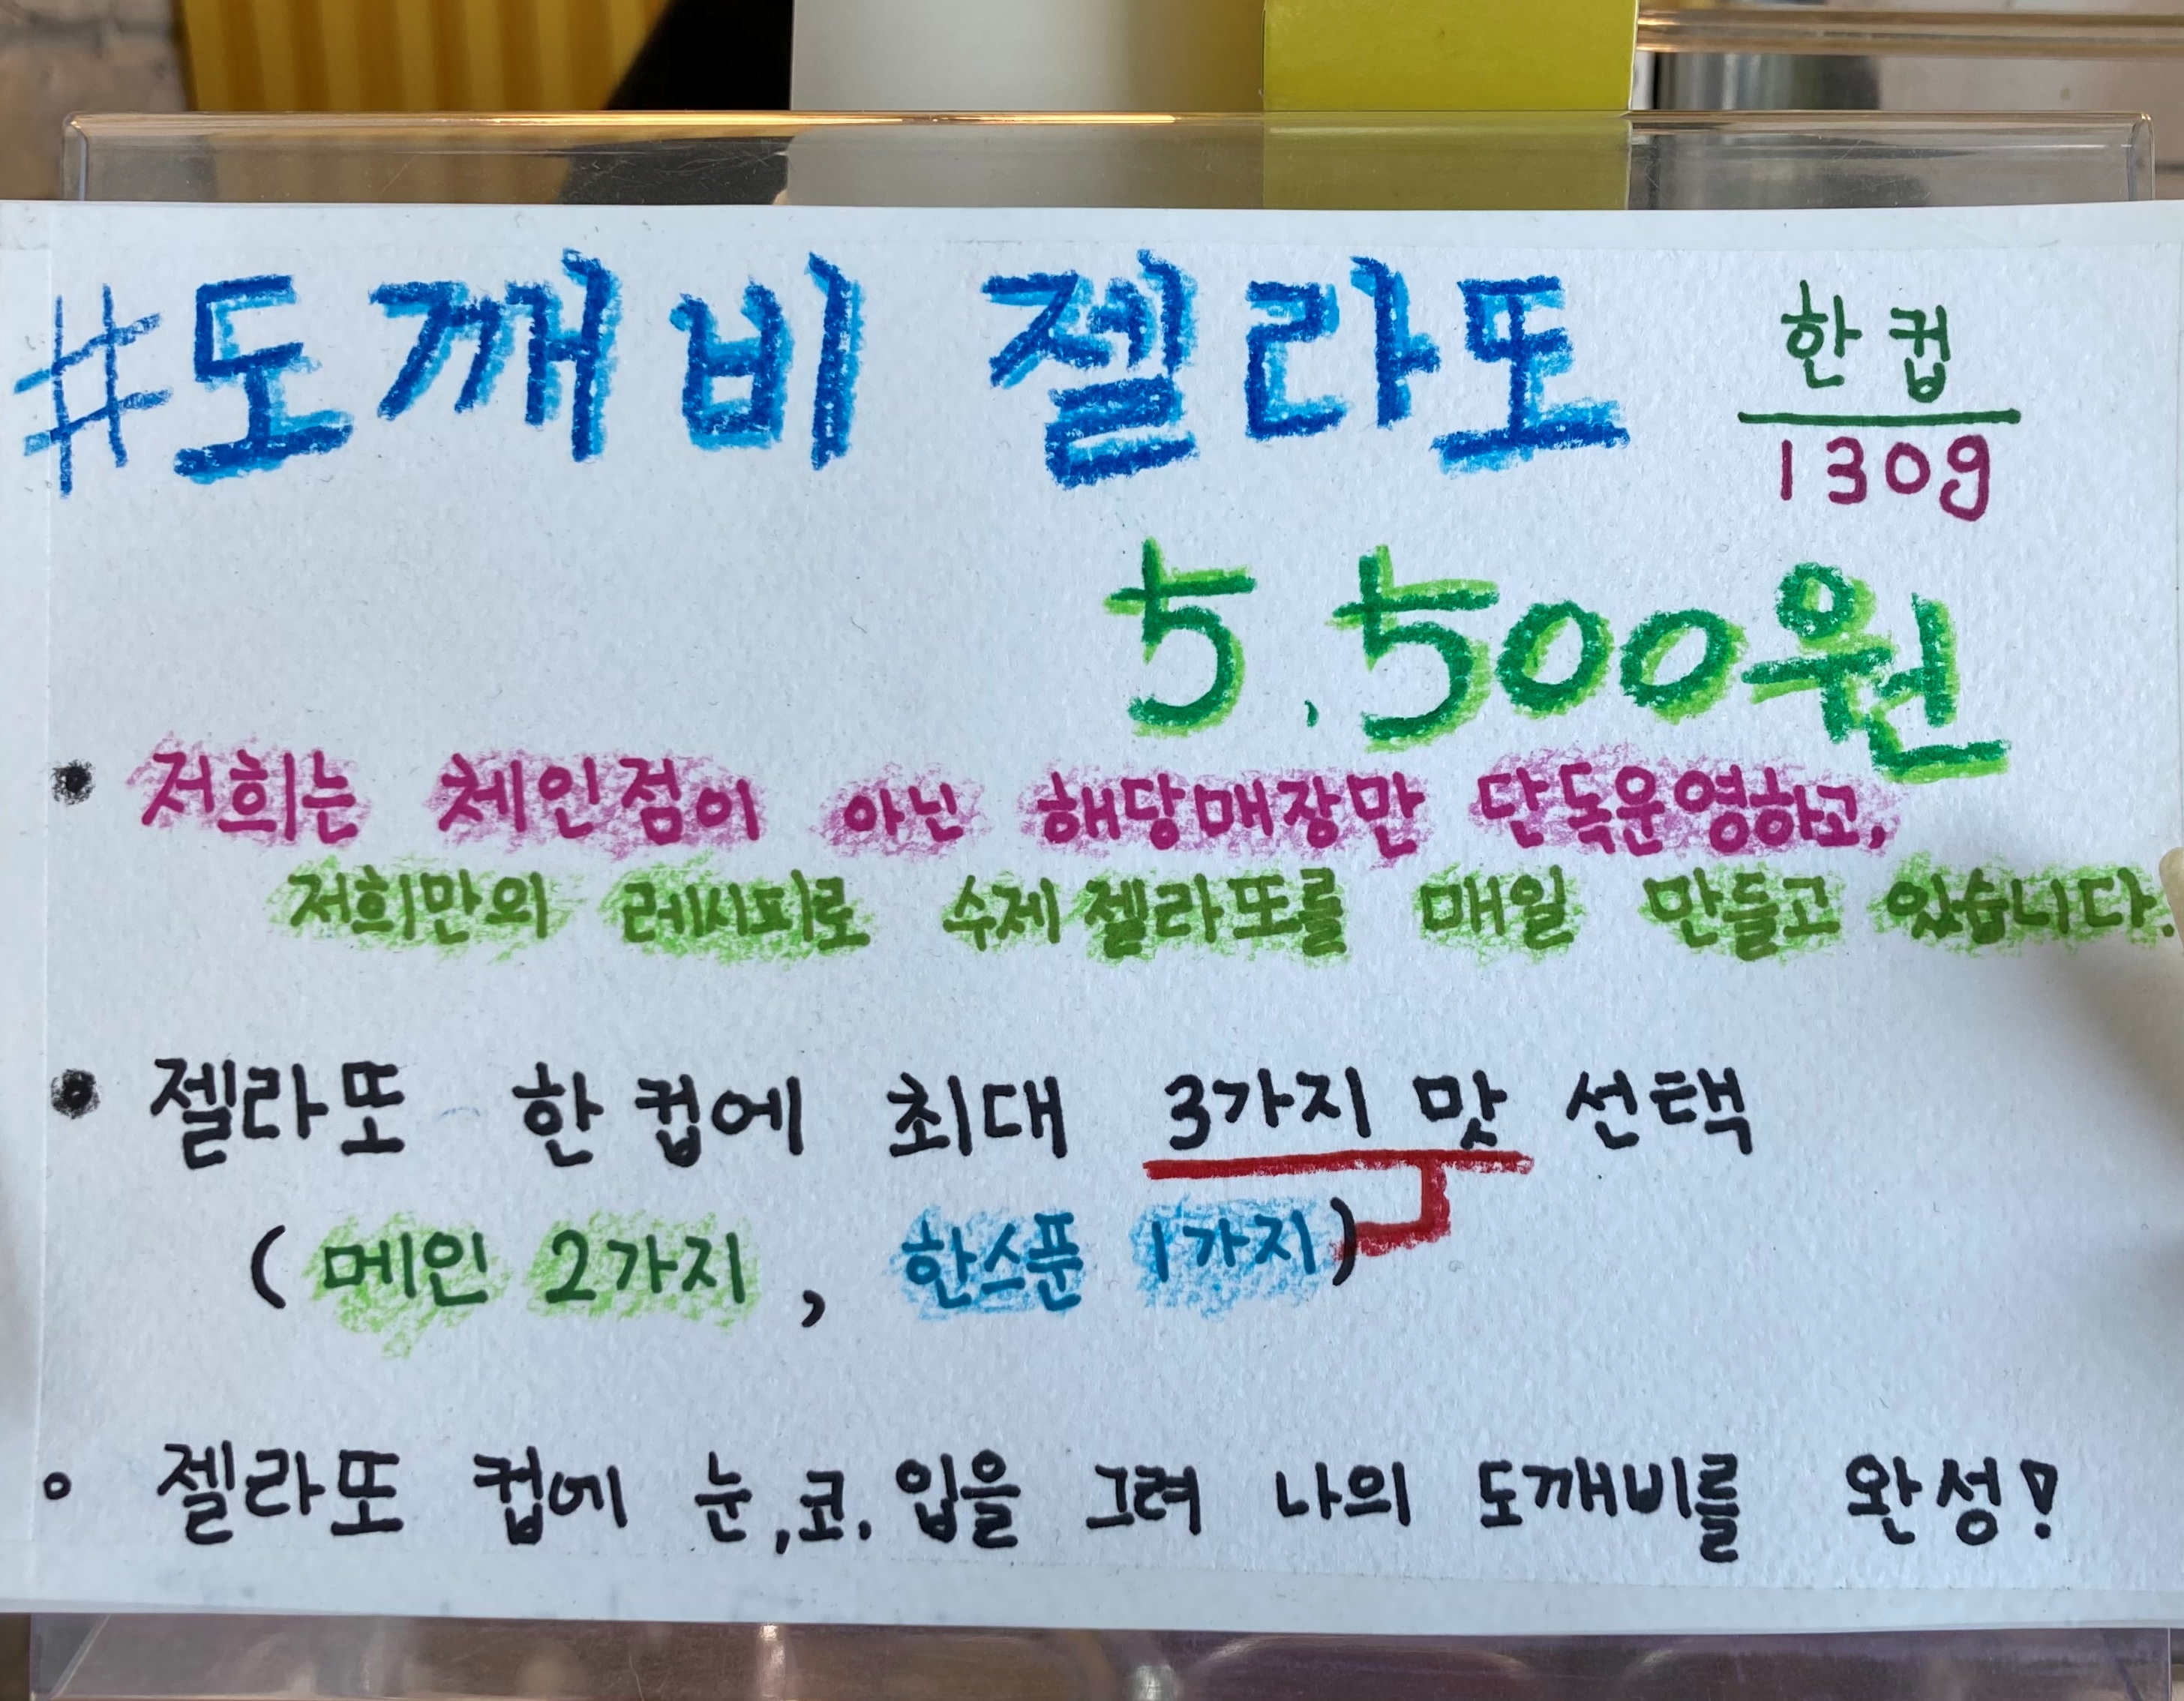 #도깨비 젤라또
한컵
130g
5,500원
• 저희는 체인점이 아닌 해당매장만 단독운영하고,
저희만의 레시피로 수제 젤라또를 매일 만들고 있습니다.
• 젤라또 한컵에 최대 3가지 맛 선택
( 메인 2가지 , 한스푼 1가지)
◦ 젤라또 컵에 눈,코. 입을 그려 나의 도깨비를 완성!